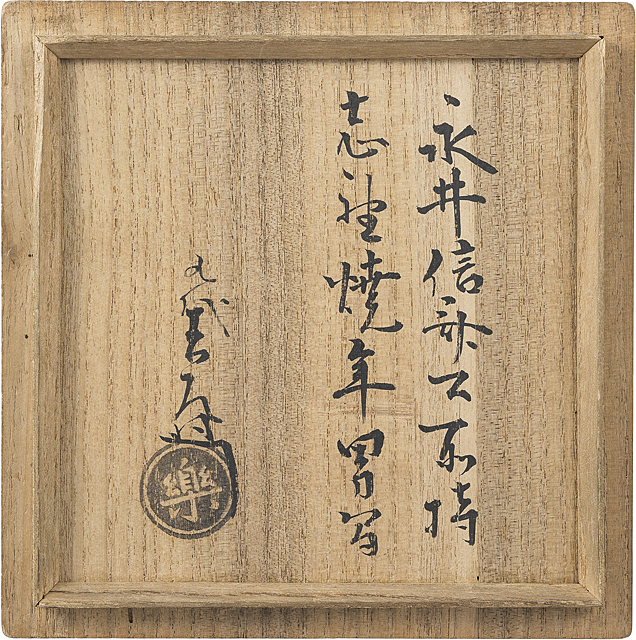 永井信斎公所持
志野焼年男写
九代吉左衛門
樂